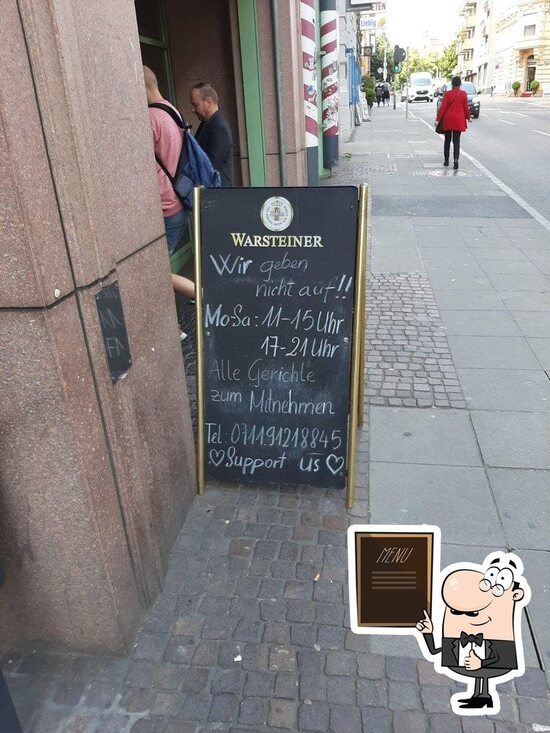 WARSTEINER
Wir geben
nicht auf!!
Mo-Sa: 11-15 Uhr
17-21 Uhr
Alle Gerichte
zum Mitnehmen
Tel: 071191218845
♡Support us♡
MENU